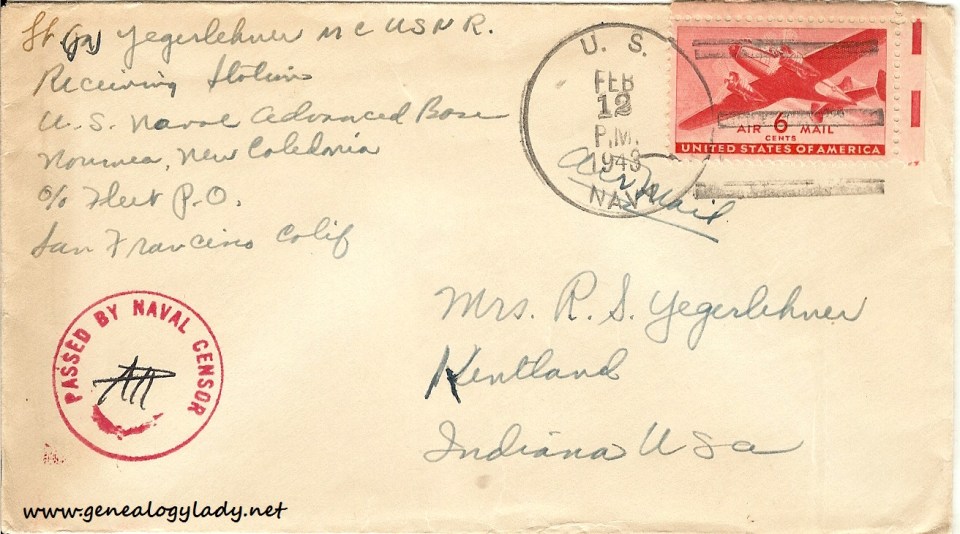 Lt (jg) Yegerlehner MC USNR.
Receiving Station
U.S. Naval Advanced Base
Noumea, New Caledonia
c/o Fleet P.O.
San Francisco Calif
U. S.
FEB
12
P.M.
1943
NAVY
Air Mail
AIR 6 MAIL
CENTS
UNITED STATES OF AMERICA
Mrs. R. S. Yegerlehner
Kentland
Indiana USA
PASSED BY NAVAL CENSOR
www.genealogylady.net